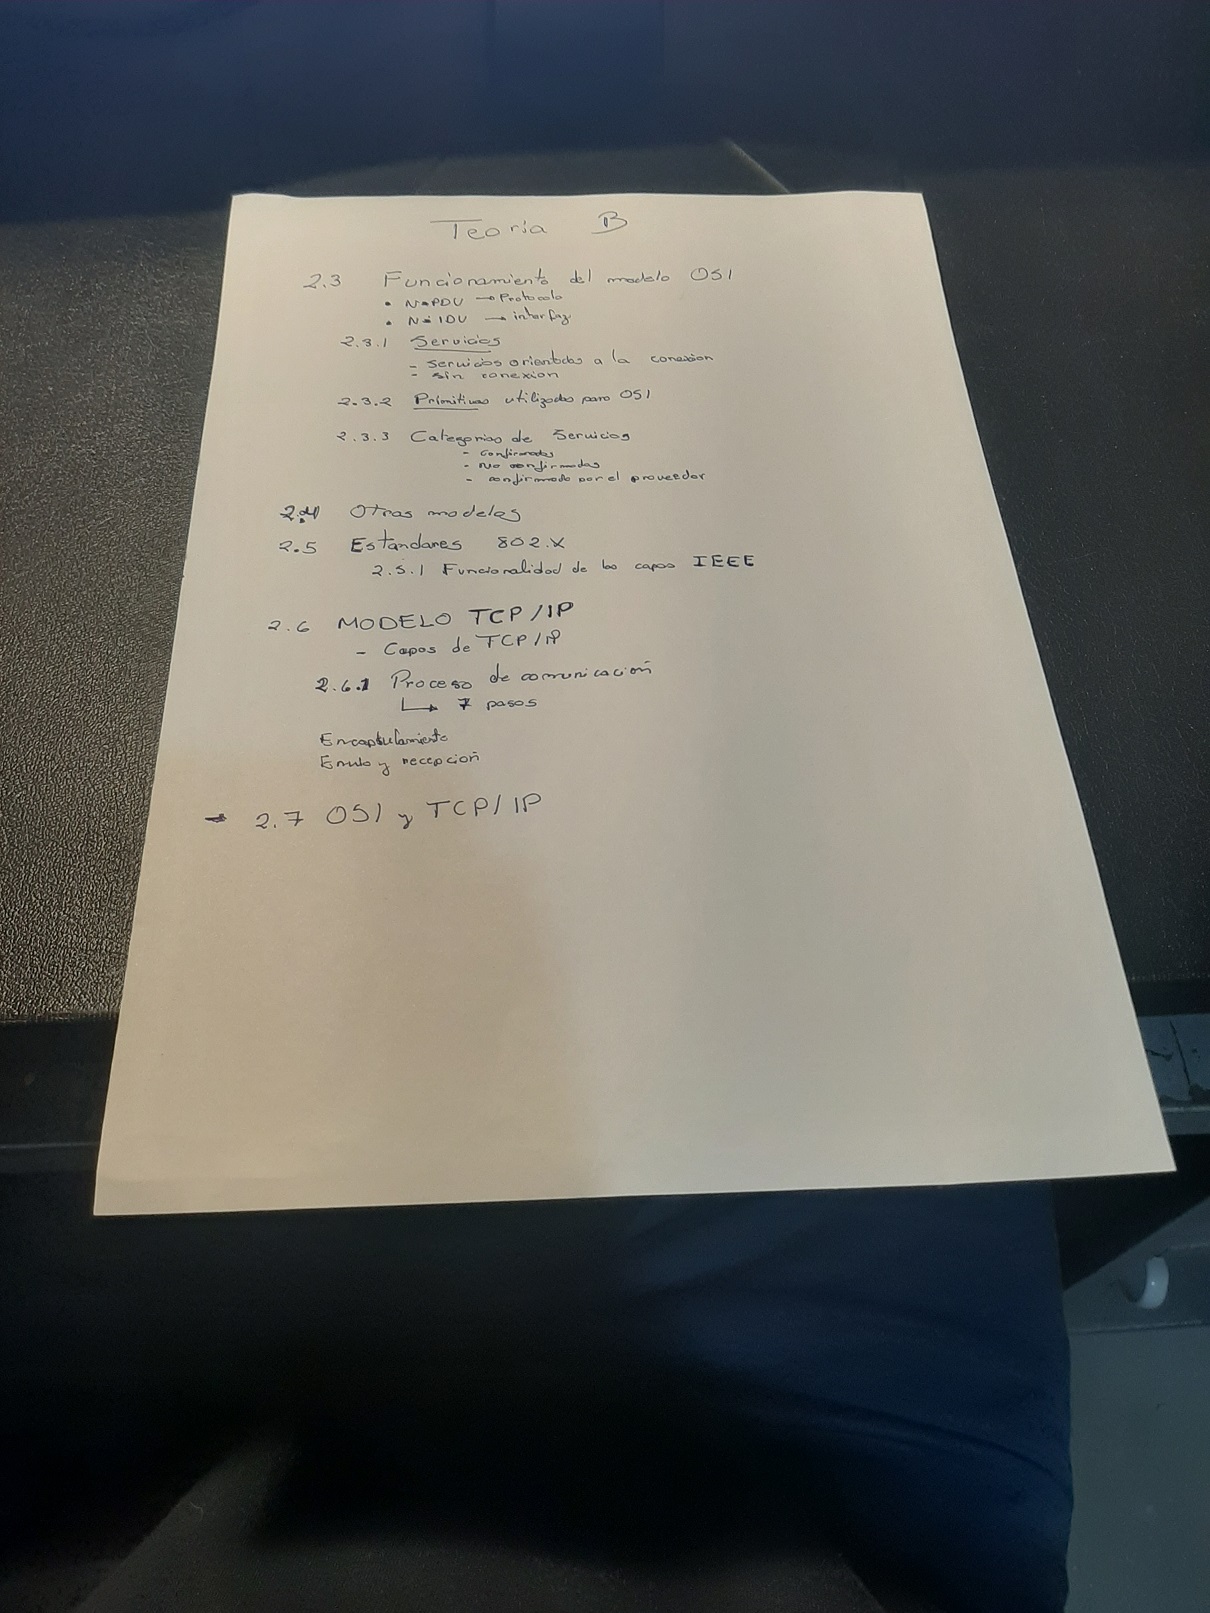 Teoria B
2.3 Funcionamiento del modelo OSI
• N-PDU → Protocolo
• N-IDU → interfaz
2.3.1 Servicios
- Servicios orientados a la conexion
- sin conexion
2.3.2 Primitivas utilizadas para OSI
2.3.3 Categorias de Servicios
- confirmados
- No confirmados
- confirmado por el proveedor
2.4 Otros modelos
2.5 Estandares 802.X
2.5.1 Funcionalidad de las capas IEEE
2.6 MODELO TCP/IP
- Capas de TCP/IP
2.6.1 Proceso de comunicación
↳ 7 pasos
Encapsulamiento
Envio y recepción
- 2.7 OSI y TCP/IP